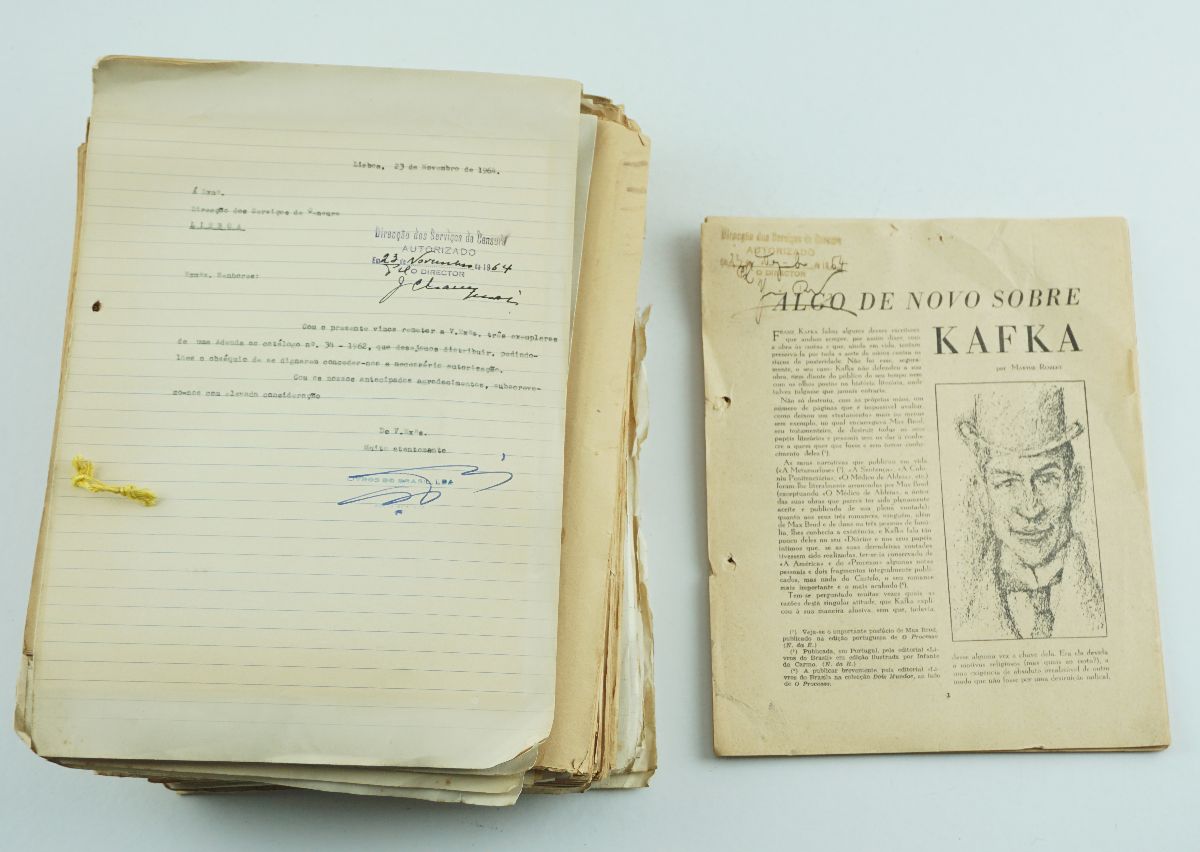 Lisboa, 23 de Novembro de 1964.
Á Exmª.
Direcção dos Serviços de Censura
LISBOA
Direcção dos Serviços da Censura
AUTORIZADO
Em 23 de Novembro de 1964
O DIRECTOR
Exmºs. Senhores:
Com o presente vimos remeter a V.Exªs. três exemplares
de uma Adenda ao catálogo nº. 34 - 1962, que desejamos distribuir, pedindo-
lhes o obséquio de se dignarem conceder-nos a necessária autorização.
Com os nossos antecipados agradecimentos, subscreve-
mo-nos com elevada consideração
De V.Exªs.
Muito atentamente
LIVROS DO BRASIL, LDA
Direcção dos Serviços da Censura
AUTORIZADO
64
O DIRECTOR
ALGO DE NOVO SOBRE
KAFKA
por Marthe Robert
FRANZ KAFKA falou algures desses escritores
que andam sempre, por assim dizer, com
a obra às costas e que, ainda em vida, tentam
preservá-la por toda a sorte de meios contra os
riscos da posteridade. Não foi esse, segura-
mente, o seu caso: Kafka não defendeu a sua
obra, nem diante do público do seu tempo nem
com os olhos postos na história literária, onde
talvez julgasse que jamais entraria.
Não só destruiu, com as próprias mãos, um
número de páginas que é impossível avaliar,
como deixou um «testamento» mais ou menos
sem exemplo, no qual encarregava Max Brod,
seu testamenteiro, de destruir todos os seus
papéis literários e pessoais sem os dar a conhe-
cer a quem quer que fosse e sem tomar conhe-
cimento deles (¹).
As suas narrativas que publicou em vida
(«A Metamorfose» (²), «A Sentença», «A Coló-
nia Penitenciária», «O Médico de Aldeia», etc.)
foram-lhe literalmente arrancadas por Max Brod
(exceptuando «O Médico de Aldeia», a única
das suas obras que parece ter sido plenamente
aceite e publicada de sua plena vontade);
quanto aos seus três romances, ninguém, além
de Max Brod e de duas ou três pessoas de famí-
lia, lhes conhecia a existência, e Kafka fala tão
pouco deles no seu «Diário» e nos seus papéis
íntimos que, se as suas derradeiras vontades
tivessem sido realizadas, ter-se-ia conservado de
«A América» e do «Processo» algumas notas
pessoais e dois fragmentos integralmente publi-
cados, mas nada do Castelo, o seu romance
mais importante e o mais acabado (³).
Tem-se perguntado muitas vezes quais as
razões desta singular atitude, que Kafka expli-
cou à sua maneira alusiva, sem que, todavia,
(¹) Veja-se o importante posfácio de Max Brod,
publicado na edição portuguesa de O Processo
(N. da R.)
(²) Publicada, em Portugal, pela editorial «Li-
vros do Brasil» em edição ilustrada por Infante
do Carmo. (N. da R.)
(³) A publicar brevemente, pela editorial «Li-
vros do Brasil» na colecção Dois Mundos, ao lado
de O Processo.
desse alguma vez a chave dela. Era ela devida
a motivos religiosos (mas quais ao certo?), a
uma exigência de absoluto irrealizável de outro
modo que não fosse por uma destruição radical,
1